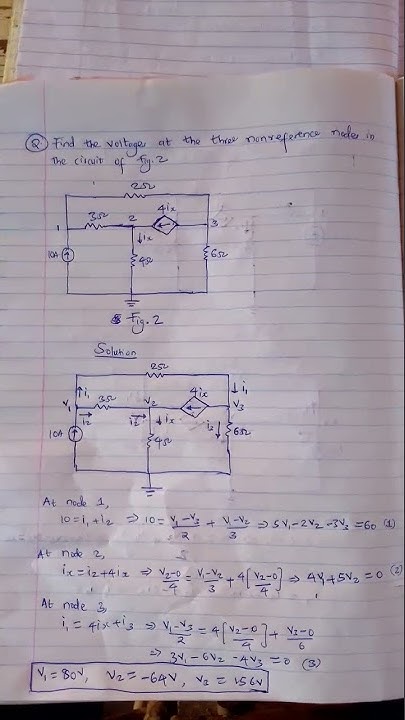 Q Find the voltages at the three nonreference nodes in
the circuit of Fig. 2
2Ω
4ix
1 3Ω 2 3
↓ix
10A 4Ω 6Ω
Fig. 2
Solution
2Ω
↑i₁ ↓i₁
V₁ 3Ω V₂ 4ix V₃
i₂ i₂ ↓ix i₃↓ 6Ω
10A 4Ω
At node 1,
10 = i₁ + i₂ ⇒ 10 = V₁-V₃/2 + V₁-V₂/3 ⇒ 5V₁-2V₂-3V₃=60 (1)
At node 2,
ix = i₂+4ix ⇒ V₂-0/4 = V₁-V₂/3 + 4[V₂-0/4] ⇒ 4V₁+5V₂=0 (2)
At node 3,
i₁ = 4ix+i₃ ⇒ V₁-V₃/2 = 4[V₂-0/4] + V₃-0/6
⇒ 3V₁-6V₂-4V₃=0 (3)
V₁=80V, V₂=-64V, V₃=156V